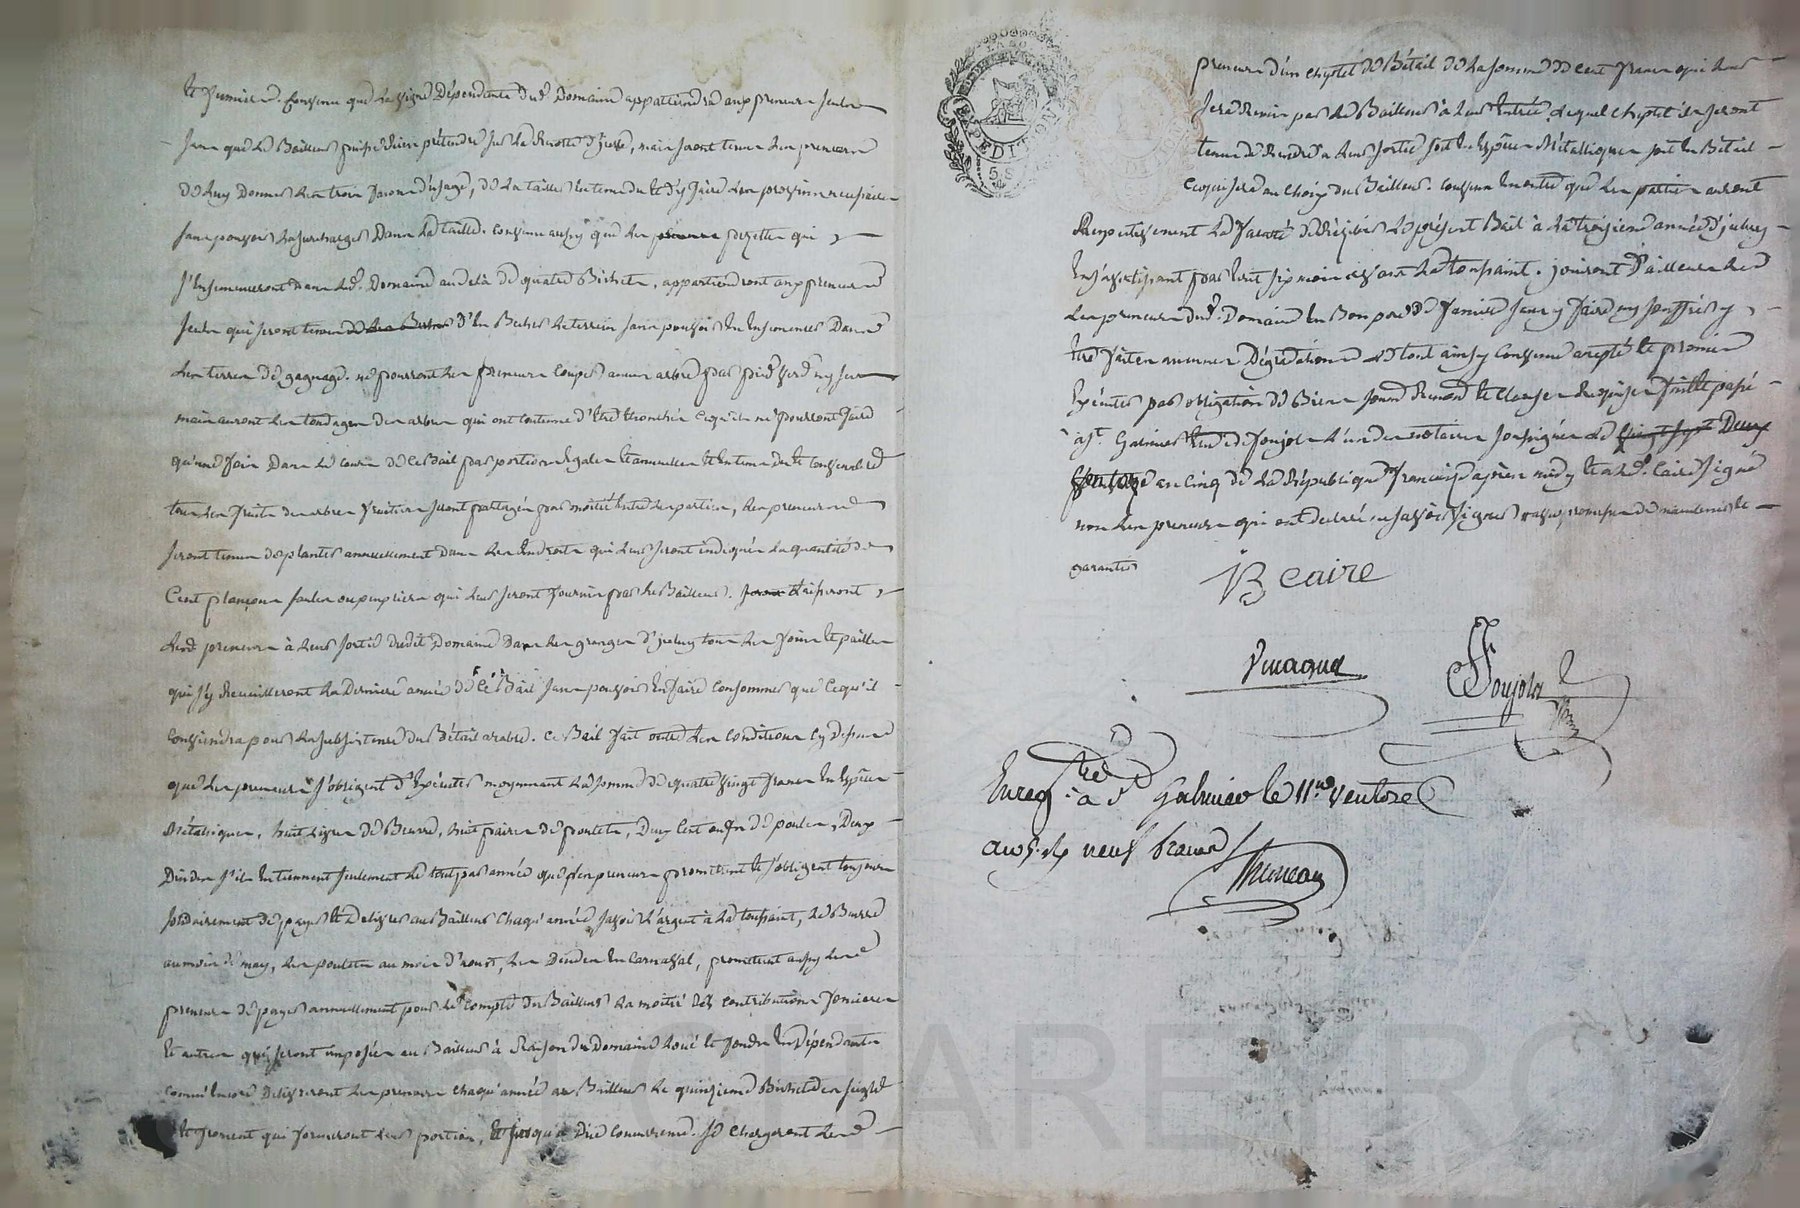 et fumier. Convenu que la vigne Dépendante dud. Domaine appartiendra aux preneurs seuls
sans que le Bailleur puisse rien prétendre sur la Recolte d'icelle, mais seront tenus les preneurs
de luy Donner les trois façons d'usage, de la tailler et d'y faire les provins necessaires
sans pouvoir la surcharger Dans la taille. Convenu aussy que les pezettes qui
s'ensemenceront Dans led. Domaine au delà de quatre Bichets, appartiendront aux preneurs
seuls qui seront tenus d'en Becher le terrein sans pouvoir en ensemencer Dans
les terres de gagnage. ne pourront les preneurs couper aucun arbre par pied verd ny sec
mais auront les tondages des arbres qui ont coutume d'être ce qu'ils ne pourront faire
qu'une fois Dans le cours de ce Bail par portions égales et annuelles
tous les fruits des arbres fruitiers seront partagés par moitié entre les parties, les preneurs
seront tenus de planter annuellement Dans les endroits qui leur seront indiqués la quantité de
Cent plançons saules ou peupliers qui leur seront fournis par le Bailleur. Laisseront
lesd preneurs à leur sortie dudit Domaine Dans les granges d'iceluy tous les foins et pailles
qui s'y Recueilleront la Derniere année de ce Bail sans pouvoir en faire consommer que ce qu'il
conviendra pour la subsistence du Bétail arable. Ce Bail fait outre les conditions cy Dessus
que les preneurs s'obligent d'exécuter moyennant la somme de quatre vingt francs en espèces
Métalliques, huit Livres de Beurre, huit paires de poulets, Deux Cent œufs de poules, Deux
Dindes s'ils en tiennent seulement le tout par année que les preneurs promettent et s'obligent toujours
solidairement de payer et Delivrer au Bailleur chaqu'année savoir l'argent à la toussaint, le Beurre
au mois de may, les poulets au mois d'aoust, les Dindes en Carnaval, promettent aussy les
preneurs de payer annuellement pour le compte du Bailleur la moitié des contributions foncieres
et autres qui seront imposées au Bailleur à Raison du Domaine loué et fonds en Dépendants
comm'encore Delivreront les preneurs chaqu'année au Bailleur le quinzieme Bichet des seigle
et froment qui formeront leur portion, et jusqu'à Dûe concurrence. Se chargeront les
preneurs d'un cheptel de Bétail de la somme de cent francs qui leur
sera Remis par le Bailleur à leur entrée, lequel cheptel ils seront
tenus de Rendre à leur sortie soit en espèces Métalliques soit en Bétail
ce qui sera au choix du Bailleur. Convenu en outre que les parties auront
Respectivement la faculté de Résilier le présent Bail à la troisieme année d'iceluy
en s'avertissant par écrit six mois avant la toussaint. jouiront d'ailleurs les
preneurs dud. Domaine en Bons peres de famille sans y faire ny souffrir y
être faites aucunes Dégradations et tout ainsy convenu accepté et promis
exécuter par obligation de Biens soum. Renond. et clauses Requises fait et passé
à St. Galmier étude de Foujols l'un des notaires soussignés le
an cinq de la République Française après midy et a led. Caire signé
non les preneurs qui ont declaré ne savoir signer
garantir
EXPEDITION
5.S
B Caire
Vinagna
Foujols
Enreg.tré à St Galmier le 11 ventose
an 5. R neuf francs